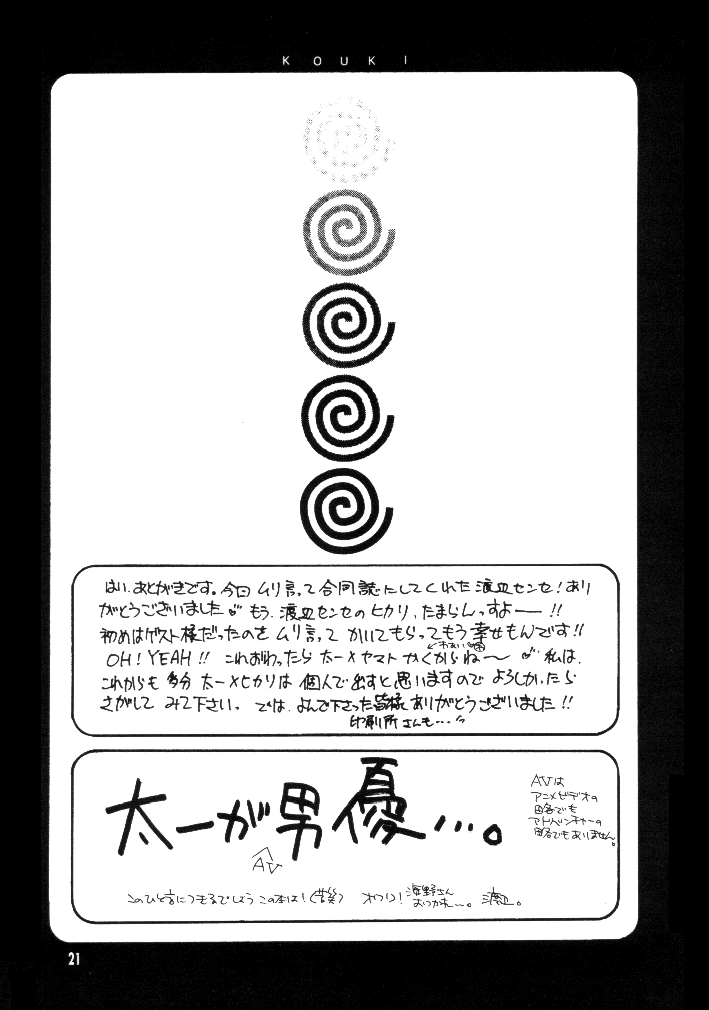 KOUKI
はい、あとがきです。今回ムリ言って合同誌にしてくれた渡辺センセ!あり
がとうございました♡もう、渡辺センセのヒカリ、たまらんっすよー!!
初めはゲスト様だったのをムリ言ってかいてもらってもう幸せもんです!!
OH!YEAH!!これおわったら太一×ヤマトかくからね〜♡私は、
これからも多分太一×ヒカリは個人で出すと思いますのでよろしかったら
さがしてみて下さい。では、よんで下さった皆様ありがとうございました!!
印刷所さんも…
太一が男優…。
AV
AVは
アニメビデオの
略でも
アドベンチャーの
略でもありません。
このひと言につきるでしょうこの本は!(苦笑)オワリ!海野さん
おつかれ〜。渡辺。
21